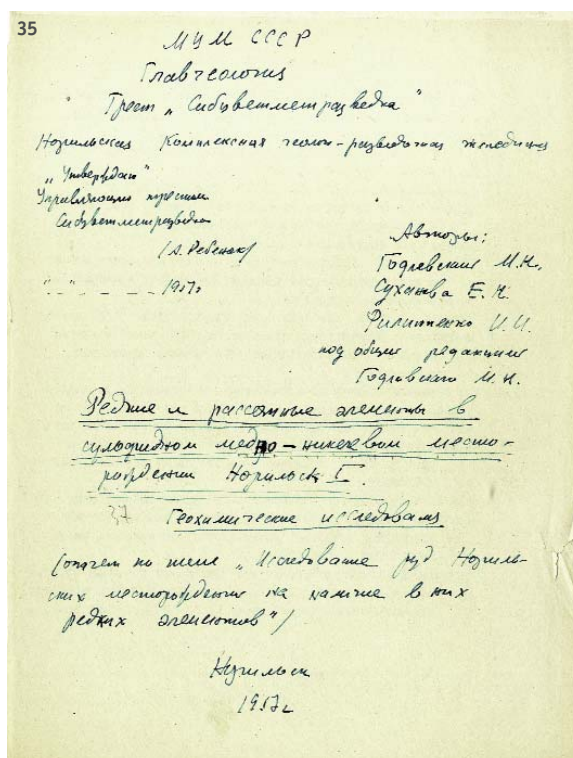 35
МЦМ СССР
Главгеология
Трест „Сибцветметразведка"
Норильская Комплексная геолого-разведочная экспедиция
„Утверждаю"
Управляющий трестом
Сибцветметразведка
/А. Ребенок/
" " 1957г
Авторы:
Годлевский М.Н.
Суханова Е.Н.
Филипенко И.И.
под общей редакцией
Годлевского М.Н.
Редкие и рассеянные элементы в
сульфидном медно-никелевом место-
рождении Норильск I.
37
Геохимические исследования
(отчет по теме „Исследование руд Нориль-
ских месторождений на наличие в них
редких элементов"/
Норильск
1957г